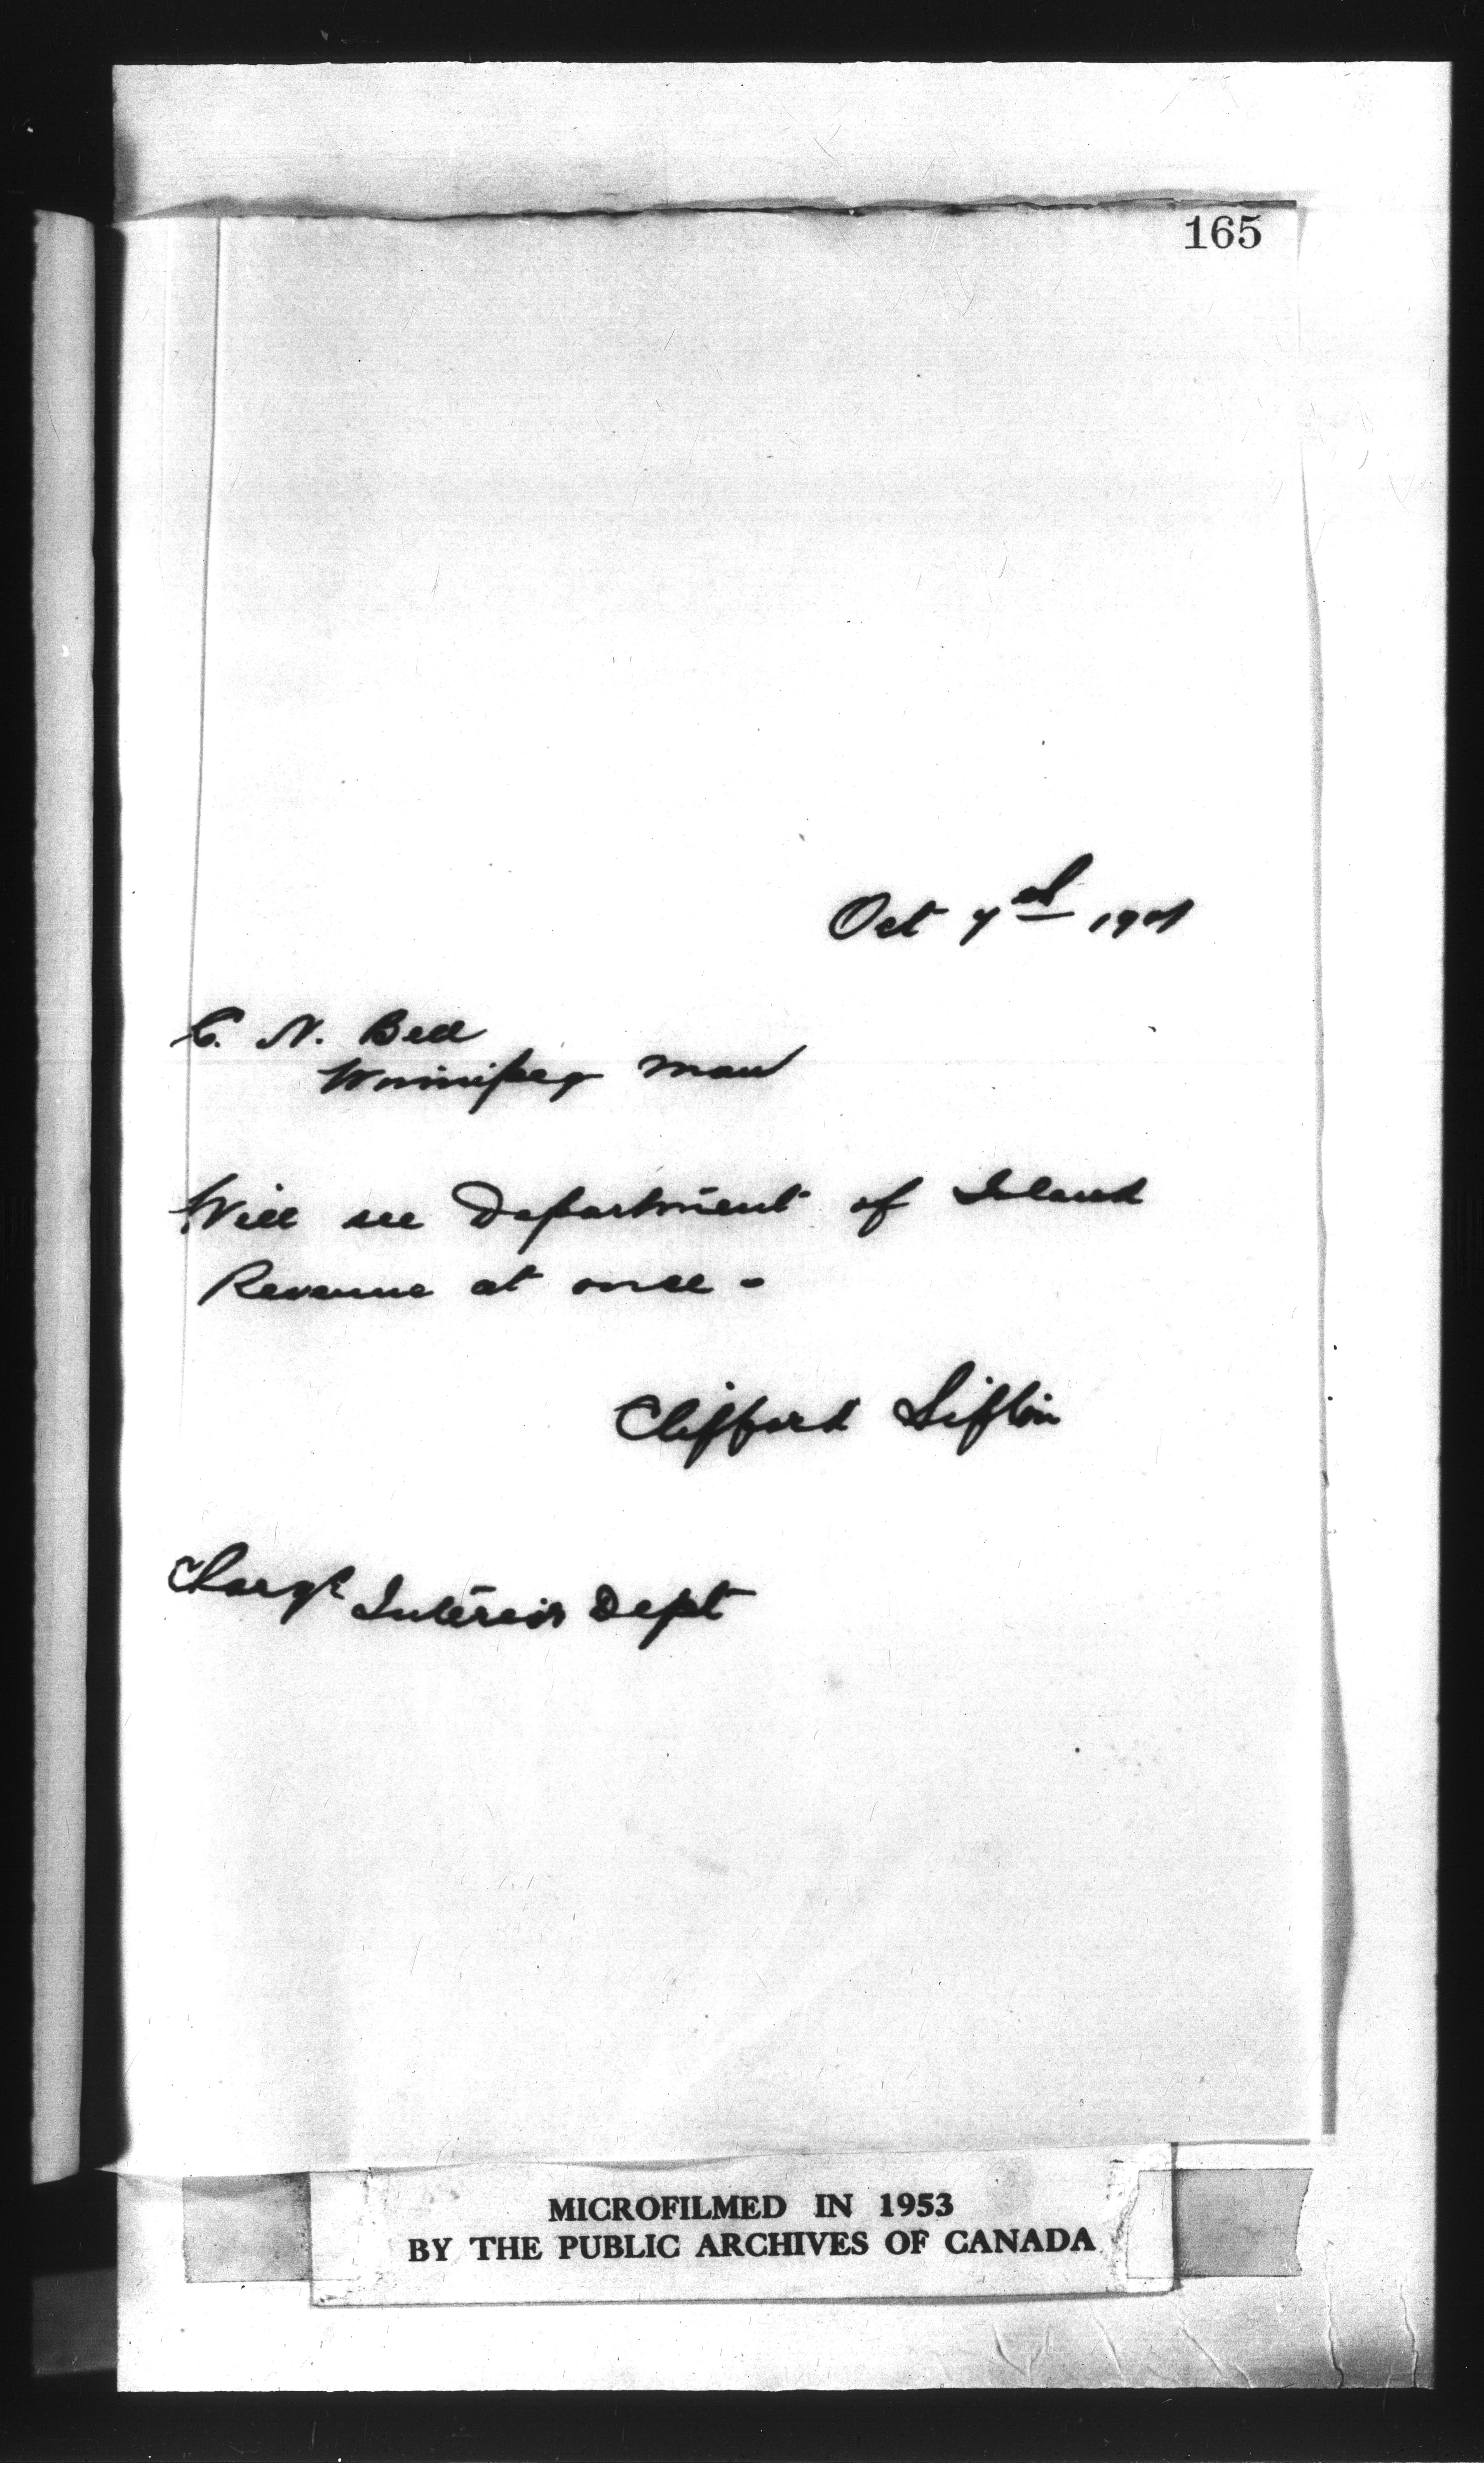 165
Oct 7th 1901
C. N. Bell
Winnipeg Man
Will see Department of Inland
Revenue at once -
Clifford Sifton
Charge Interior Dept
MICROFILMED IN 1953
BY THE PUBLIC ARCHIVES OF CANADA